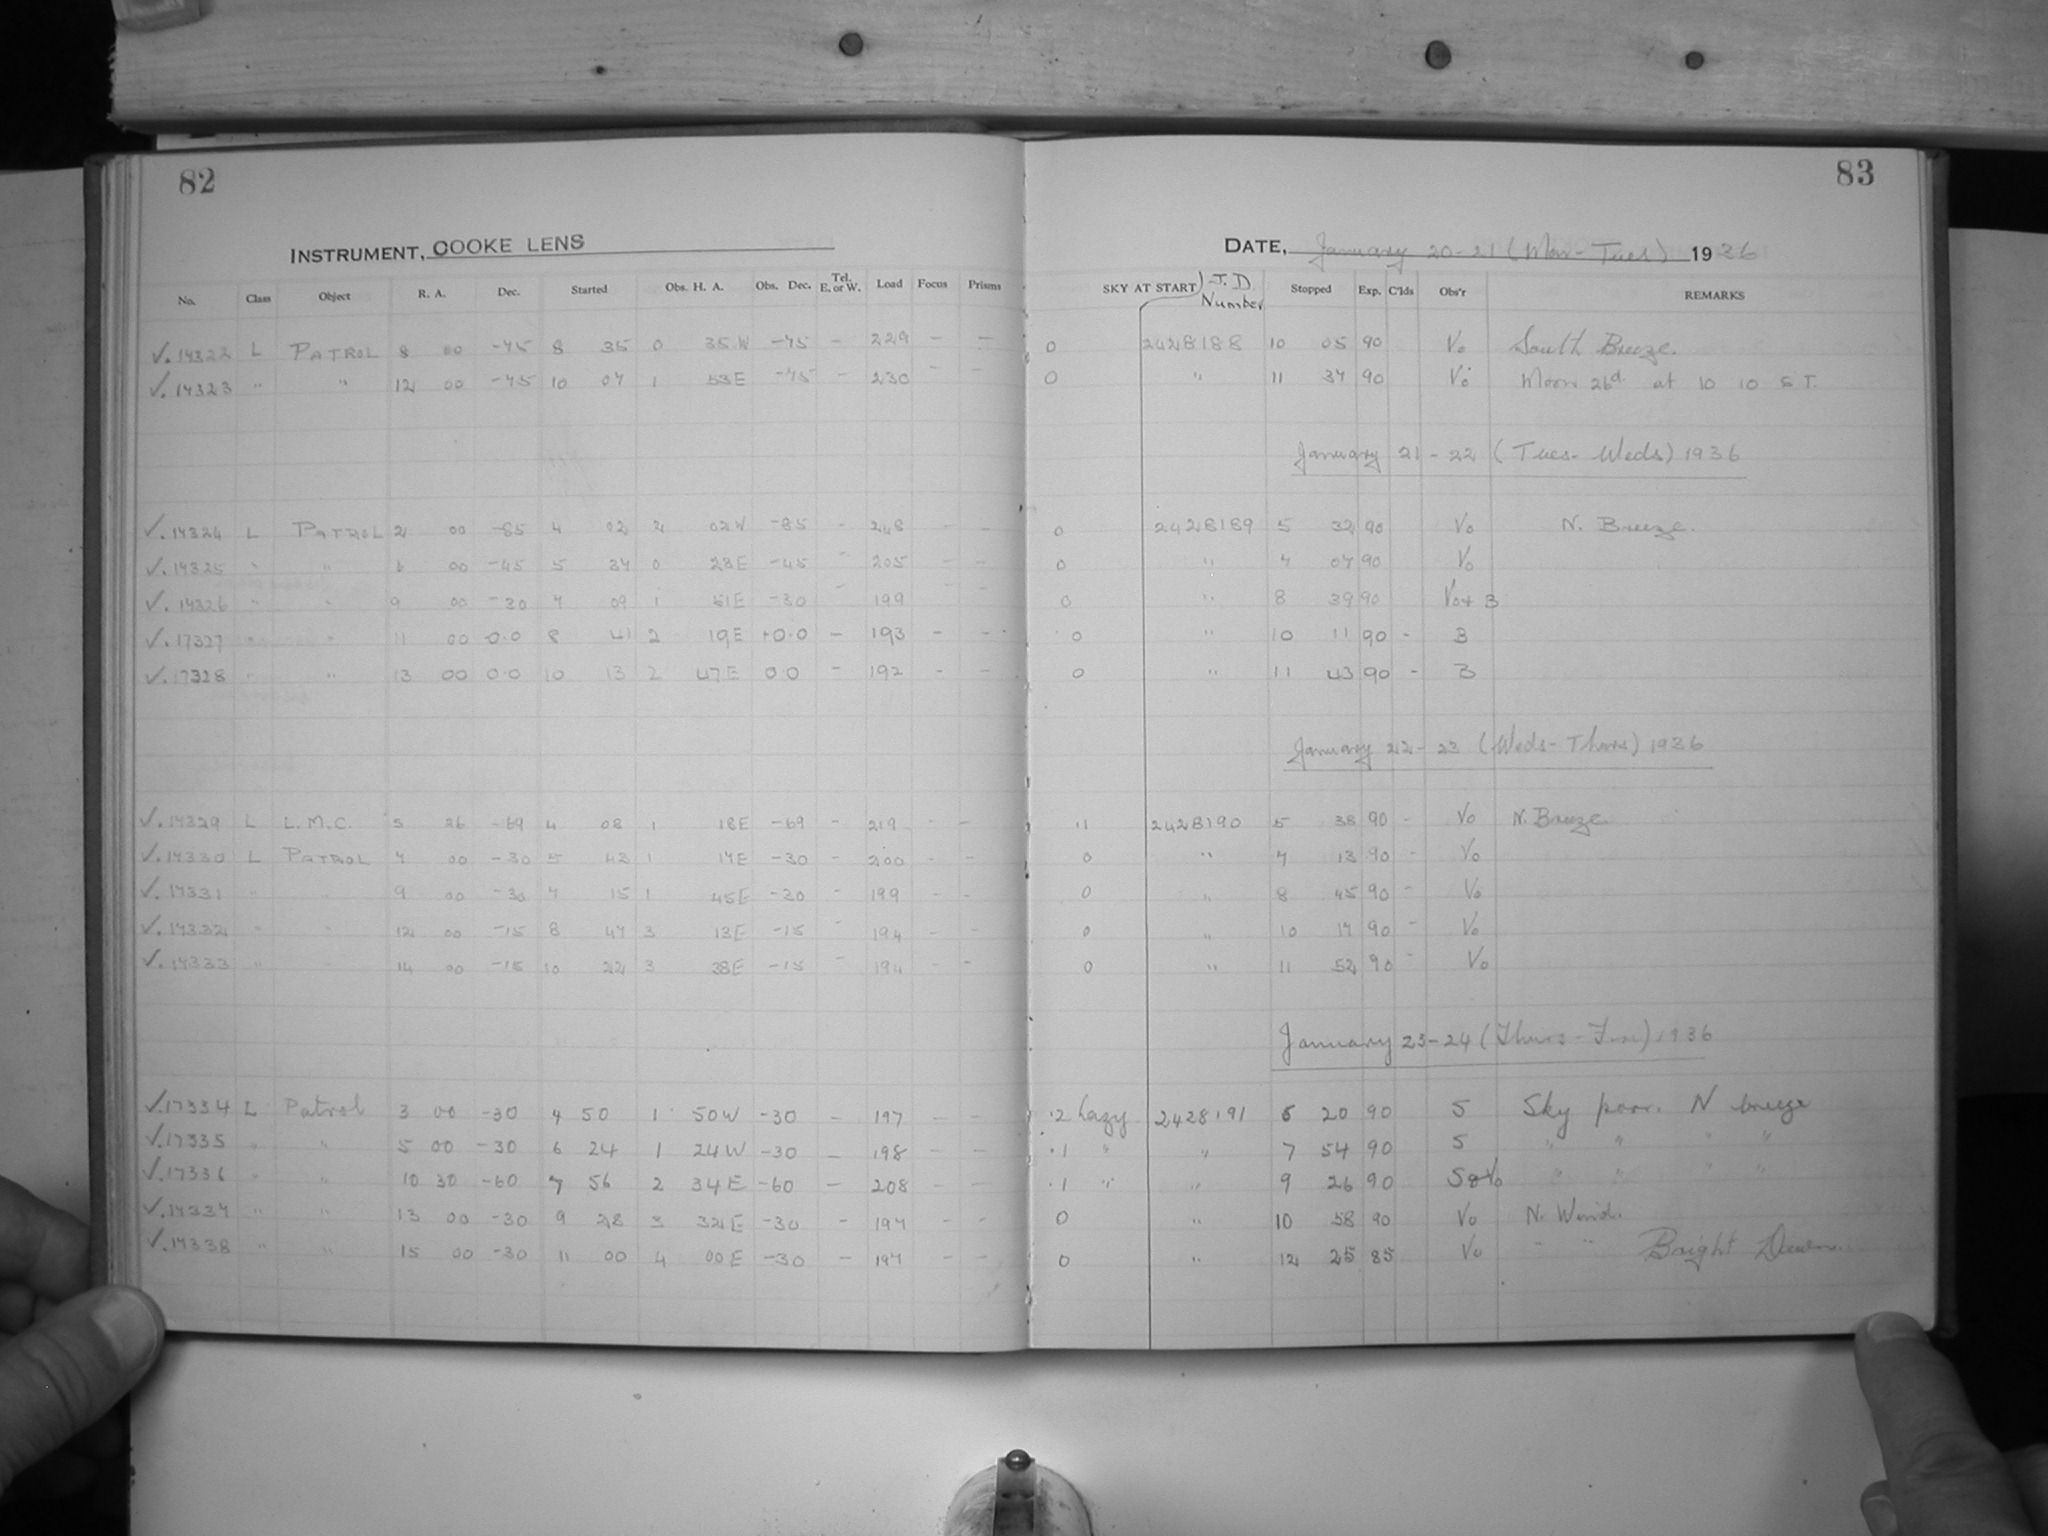 82
83
INSTRUMENT, COOKE LENS
DATE, January 20-21 (Mon-Tues) 1936
No. Class Object R. A. Dec. Started Obs. H. A. Obs. Dec. Tel. E. or W. Load Focus Prisms SKY AT START J.D. Number Stopped Exp. C'lds Obs'r REMARKS
✓. 17322 L PATROL 8 00 -45 8 35 0 35W -45 - 229 - - 0 2428188 10 05 90 Vo South Breeze.
✓. 17323 " " 12 00 -45 10 07 1 53E -45 - 230 - - 0 " 11 37 90 Vo Moon 26d. at 10 10 S.T.
January 21-22 (Tues-Weds) 1936
✓. 17324 L PATROL 2 00 -85 4 02 2 02W -85 - 248 - - 0 2428189 5 32 90 Vo N. Breeze.
✓. 17325 " " 6 00 -45 5 37 0 23E -45 - 205 - - 0 " 7 07 90 Vo
✓. 17326 " " 9 00 -30 7 09 1 51E -30 - 199 - - 0 " 8 39 90 Vo+B
✓. 17327 " " 11 00 0.0 8 41 2 19E +0.0 - 193 - - 0 " 10 11 90 - B
✓. 17328 " " 13 00 0.0 10 13 2 47E 0.0 - 192 - - 0 " 11 43 90 - B
January 22-23 (Weds-Thurs) 1936
✓. 17329 L L.M.C. 5 26 -69 4 08 1 18E -69 - 219 - - " 2428190 5 38 90 - Vo N. Breeze.
✓. 17330 L PATROL 7 00 -30 5 43 1 17E -30 - 200 - - 0 " 7 13 90 - Vo
✓. 17331 " " 9 00 -30 7 15 1 45E -30 - 199 - - 0 " 8 45 90 - Vo
✓. 17332 " " 12 00 -15 8 47 3 13E -15 - 194 - - 0 " 10 17 90 - Vo
✓. 17333 " " 14 00 -15 10 22 3 38E -15 - 194 - - 0 " 11 52 90 - Vo
January 23-24 (Thurs-Fri) 1936
✓. 17334 L Patrol 3 00 -30 4 50 1 50W -30 197 - - .2 hazy 2428191 6 20 90 S Sky poor. N breeze
✓. 17335 " " 5 00 -30 6 24 1 24W -30 - 198 - - .1 " " 7 54 90 S " " " "
✓. 17336 " " 10 30 -60 7 56 2 34E -60 - 208 - - .1 " " 9 26 90 S&Vo " " " "
✓. 17337 " " 13 00 -30 9 28 3 32E -30 - 197 - - 0 " 10 58 90 Vo N. Wind.
✓. 17338 " " 15 00 -30 11 00 4 00E -30 - 197 - - 0 " 12 25 85 Vo " " Bright Dawn.